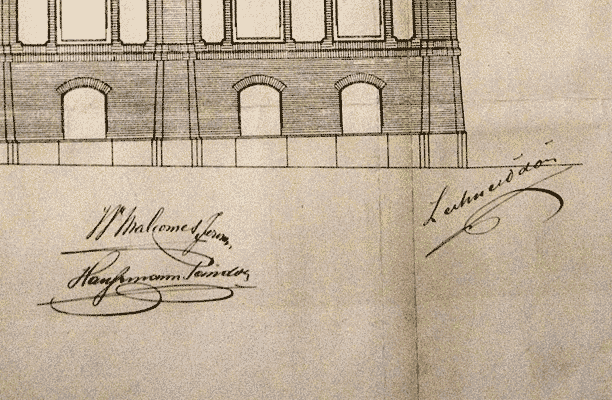 Wm Malcomes Jerom.
Haußmann Sandor
Lechner Ödön